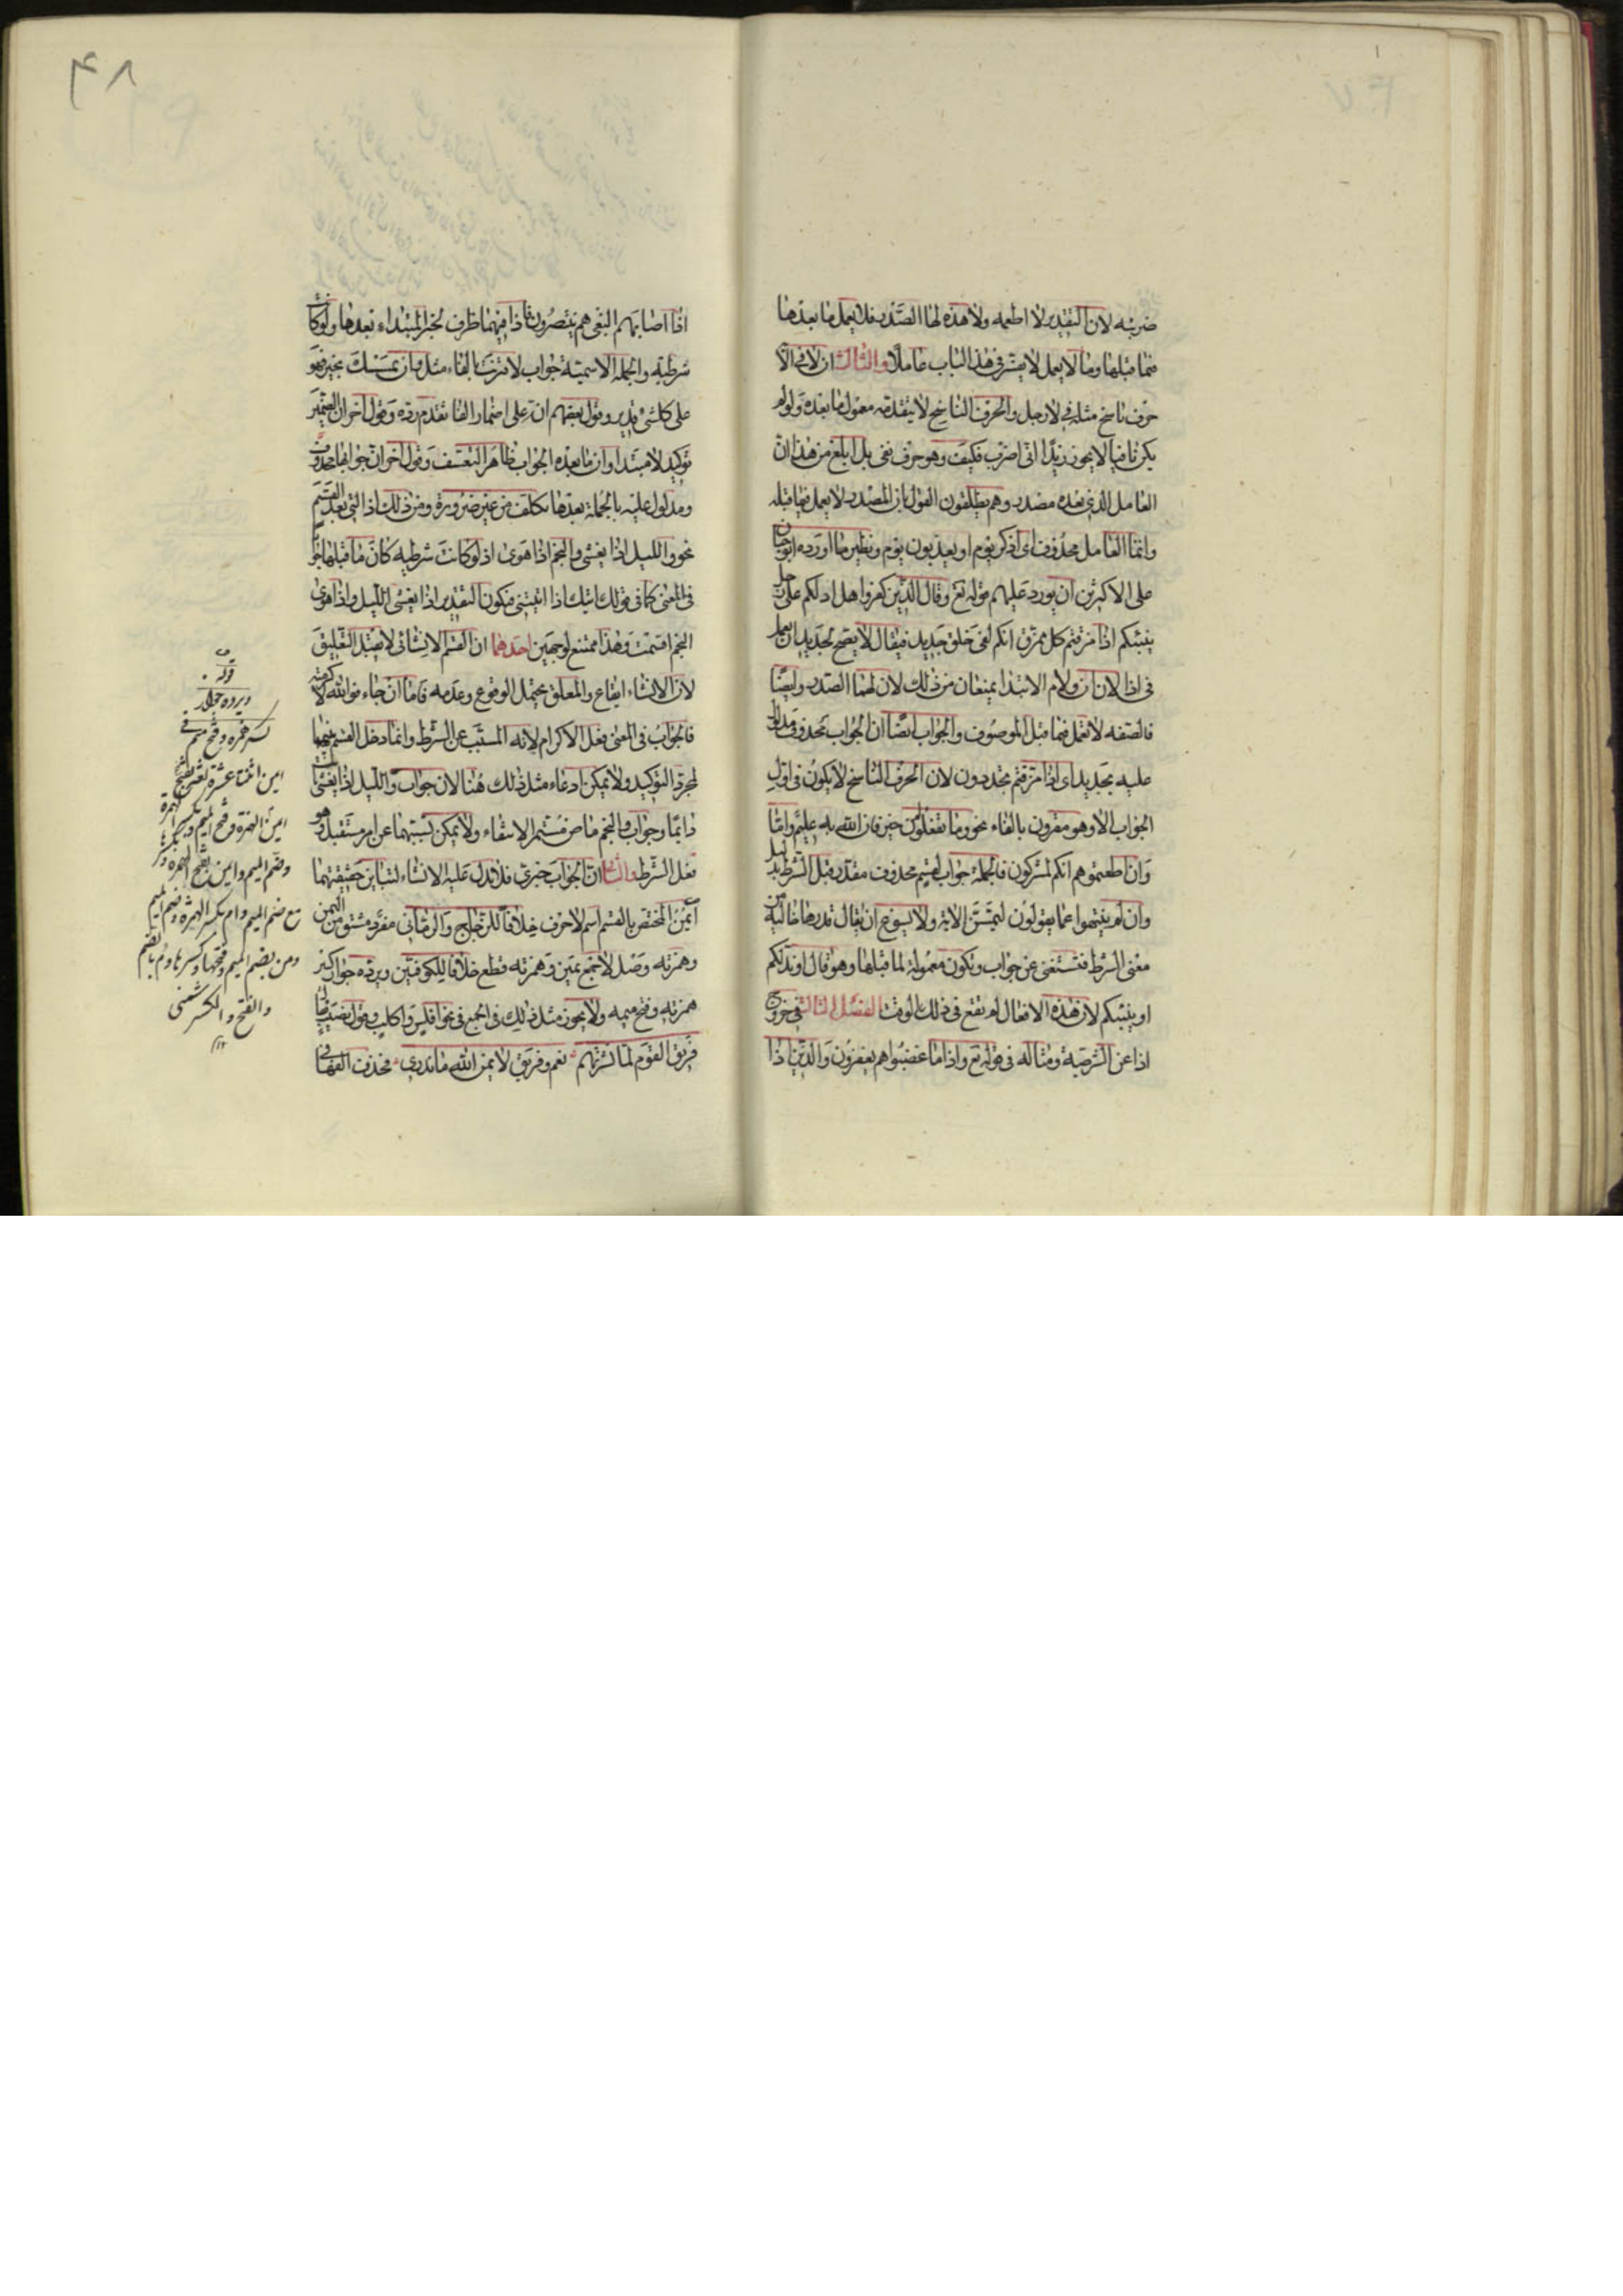 ضربته لان التقدير لا اطعمه ولا هذه لها الصدر فلا يعمل ما بعدها
فيما قبلها وما لا يعمل لا يفسر في هذا الباب عاملا والثالث ان لا في الا
حرف ناسخ مثله في لا رجل والحرف الناسخ لا يتقدمه معمول ما بعده ولو لم
يكن نافيا لا يجوز زيدا اني اضرب فكيف وهو حرف نفى بل ابلغ من هذا ان
العامل الذي بعده مصدر وهم يطلقون القول بان المصدر لا يعمل فيما قبله
وانما العامل محذوف اى اذكر يوم او يعذبون يوم ونظير ما اورده ابو حيان
على الاكثرين ان يورد عليهم قوله تع وقال الذين كفروا هل ادلكم على رجل
ينبئكم اذا مزقتم كل ممزق انكم لفى خلق جديد فيقال لا يصح لجديد ان يعمل
في اذا لان ان ولام الابتدا يمنعان من ذلك لان لهما الصدر وايضا
فالصفه لا تعمل فيما قبل الموصوف والجواب ايضا ان الجواب محذوف مدلول
عليه بجديد اى اذا مزقتم تجددون لان الحرف الناسخ لا يكون في اول
الجواب الا وهو مقرون بالفاء نحو وما تفعلوا من خير فان الله به عليم واما
وان اطعتموهم انكم لمشركون فالجملة جواب لقسم محذوف مقدر قبل الشرط بدليل
وان لم ينتهوا عما يقولون ليمسن الاية ولا يسوغ ان يقال قدرها خالية من
معنى الشرط فتستغنى عن جواب وتكون معمولة لما قبلها وهو قال او ندلكم
او ينبئكم لان هذه الافعال لم تقع في ذلك الوقت الفصل الثالث في خروج
اذا عن الشرطية ومثاله في قوله تع واذا ما غضبوا هم يغفرون والذين اذا
اذا اصابهم البغى هم ينتصرون فاذا فيهما ظرف لخبر المبتداء بعدها ولو كانت
شرطية والجملة الاسمية جواب لاقترنت بالفاء مثل فان يمسسك بخير فهو
على كل شئ قدير وقول بعضهم انه على اضمار الفا تقدم رده وقول اخر ان الضمير
توكيد لا مبتدا وان ما بعده الجواب ظاهر التعسف وقول اخر ان جوابها محذوف
ومدلول عليه بالجملة بعدها تكلف من غير ضرورة ومن ذلك اذا التي بعد القسم
نحو والليل اذا يغشى والنجم اذا هوى اذ لو كانت شرطيه كان ما قبلها جوابا
في المعنى كما في قولك اتيك اذا اتيتني فيكون التقدير اذا يغشى الليل واذا هوى
النجم اقسمت وهذا ممتنع لوجهين احدهما ان القسم الانشائى لا يقبل التعليق
لان الانشاء ايقاع والمعلق يحتمل الوقوع وعدمه فاما ان جاء فو الله لاكرمنه
فالجواب في المعنى فعل الاكرام لانه المسبب عن الشرط وانما دخل القسم بينهما
لمجرد التوكيد ولا يمكن ادعاء مثل ذلك هنا لان جواب والليل اذا يغشى ثابت
دايما وجواب والنجم ماض مستمر الانتفاء ولا يمكن تسببهما عن امر مستقبل وهو
فعل الشرط والثانى ان الجواب خبري فلا يدل عليه الانشاء لتباين حقيقتهما
ايمن المختص بالقسم اسم لا حرف خلافا للزجاج والرمانى مفرد مشتق من اليمن
وهمزته وصل لا جمع يمين وهمزته قطع خلافا للكوفيين ويرده جواز كسر
همزته وفتح ميمه ولا يجوز مثل ذلك في الجمع في نحو افلس واكلب وقول نصيب
فريق القوم لما نشدتهم نعم وفريق لايمن الله ما ندري فحذف الفها في
قوله
ويرده جواز
كسر همزه وفتح ميمه في
ايمن اثنتا عشرة لغة بفتح
ايمن الهمزة وفتح الميم وبكسر الهمزة
وضم الميم وايمن بفتح الهمزة
مع ضم الميم وام بكسر الهمزة وضم الميم
ومن بضم الميم وفتحها وكسرها وم بالضم
والفتح والكسر شمنى
١٢
۴٨